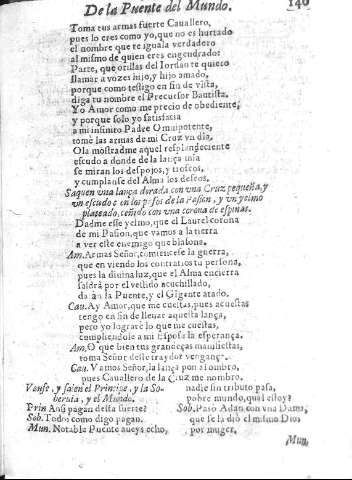 De la Puente del Mundo. 140
Toma tus armas fuerte Cauallero,
pues lo eres como yo, que no es hurtado
el nombre que te iguala verdadero
al mismo de quien eres engendrado:
Parte, que orillas del Iordan te quiero
llamar a vozes hijo, y hijo amado,
porque como testigo en fin de vista,
diga tu nombre el Precursor Bautista.
Yo Amor como me precio de obediente,
y porque solo yo satisfacia
a mi infinito Padre Omnipotente,
tomè las armas de mi Cruz vn dia,
Ola mostradme aquel resplandeciente
escudo a donde de la lança mia
se miran los despojos, y trofeos,
y cumplanse del Alma los deseos.
Saquen vna lança dorada con vna Cruz pequeña, y
vn escudo con los passos de la Passion, y vn yelmo
plateado, ceñido con vna corona de espinas.
Dadme esse yelmo, que el Laurel corona
de mi Pasion, que vamos a la tierra
a ver este enemigo que blasona.
Am. Armas Señor, comiencese la guerra,
que en viendo los contrarios tu persona,
pues la diuina luz, que el Alma encierra
saldrà por el vestido acuchillado,
daràn la Puente, y el Gigante atado.
Cau. Ay Amor, que me cuestas, pues acuestas
tengo en fin de lleuar aquesta lança,
pero yo lograrè lo que me cuestas,
cumpliendole a mi Esposa la esperança.
Am. O que bien tus grandeças manifiestas,
toma Señor deste traydor vengança.
Cau. Vamos Señor, la lança pon al ombro,
pues Cauallero de la Cruz me nombro.
Vanse, y salen el Principe, y la So-
beruia, y el Mundo.
Prin Ansi pagan desta suerte?
Sob. Todos como digo pagan.
Mun. Notable Puente aueys echo,
nadie sin tributo pasa,
pobre mundo, qual estoy?
Sob. Pasò Adan con vna Dama,
que se la diò el mismo Dios
por muger.
Mun.